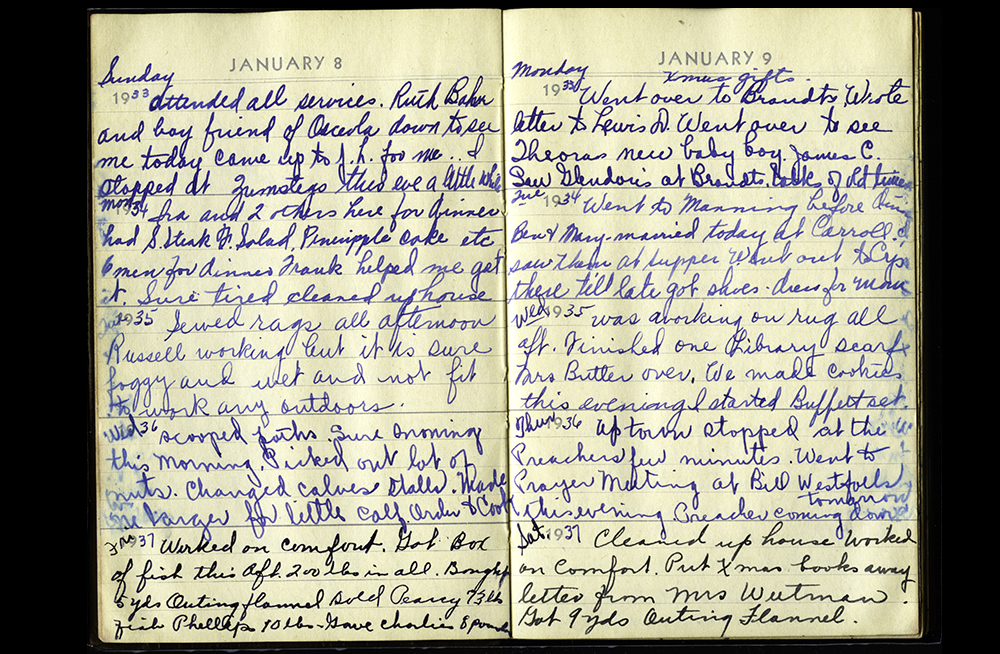 JANUARY 8
Sunday
1933 attended all services. Ruth Bahn
and boy friend of Osceola down to see
me today came up to J.h. for me .. I
stopped at Zumstegs this eve a little while
Mon 1934 Ira and 2 others here for dinner
had S. Steak F. Salad, Pineapple cake etc
6 men for dinner Frank helped me get
it. Sure tired cleaned up house
1935 Sewed rags all afternoon
Russell working but it is sure
foggy and wet and not fit
to work any outdoors.
Wed 36 scooped paths. Sure snowing
this morning. Picked out lot of
nuts. Changed calves stalls. Made
one larger for little calf. Order to Cook
Fri 1937 Worked on comfort. Got Box
of fish this Aft. 200 lbs in all. Bought
5 yds Outing flannel sold Pearcy 73 lbs
fish Phellips 10 lbs. Gave Charlies 8 pounds
JANUARY 9
Monday Xmas gifts.
1933 Went over to Brandts Wrote
letter to Lewis D. Went over to see
Theoras new baby boy. James C.
Saw Glendoris at Brandt. talk of old times
Tue 1934 Went to Manning before
Ben & Mary married today at Carroll.
saw them at supper Went out to
there till late got shoes - dress for mom
Wed 1935 was working on rug all
aft. Finished one Library scarf
Mrs Butler over. We made cookies
this evening I started Buffett set.
Thur 1936 Up town stopped at the
Preachers few minutes. Went to
Prayer Meeting at Bill Westfals
this evening. Preacher coming down tomorrow
Sat. 1937 Cleaned up house Worked
on Comfort. Put Xmas books away
letter from Mrs Weitman.
Got 9 yds Outing Flannel.